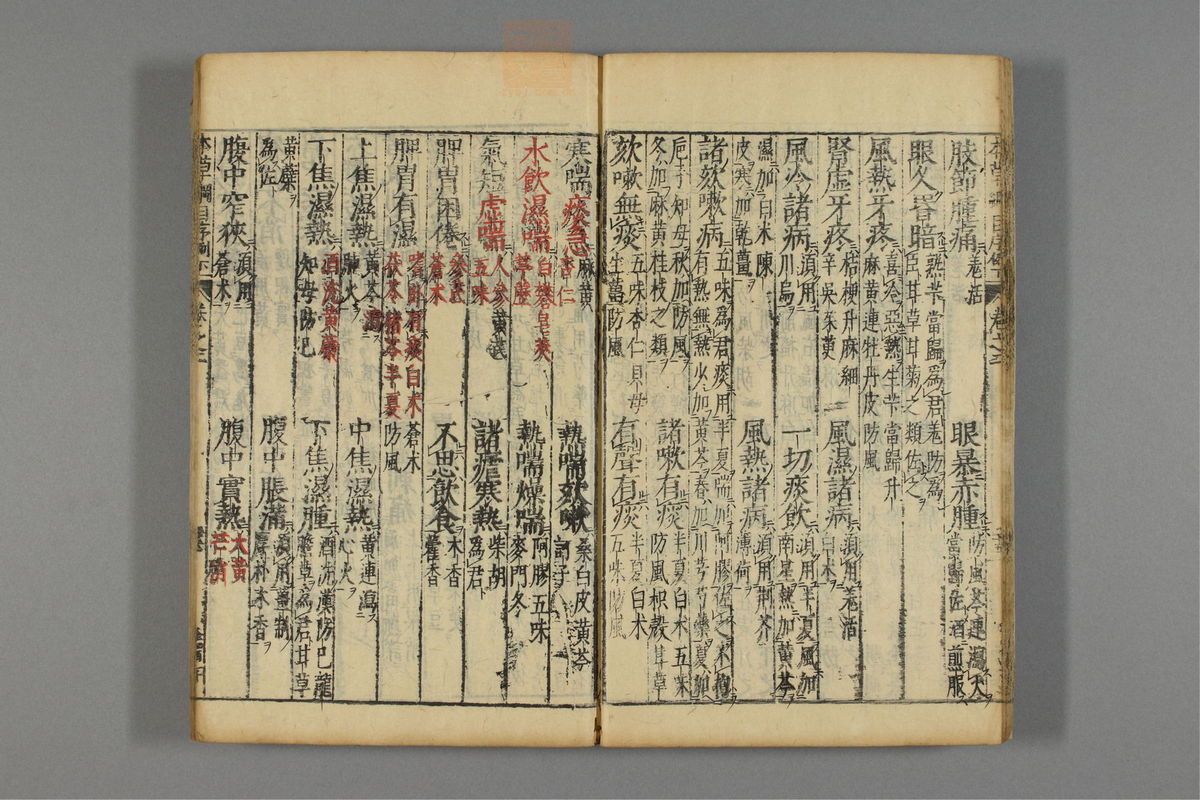 肢節腫痛 羌活
眼暴赤腫 防風芩連瀉火
當歸佐酒煎服
眼久昏暗 熟芐當歸爲君羌防爲
臣甘草甘菊之類佐之
風熱牙疼 喜冷惡熱生芐當歸升
麻黃連牡丹皮防風
腎虛牙疼 桔梗升麻細
辛吳茱萸
風濕諸病 須用羌活
白朮
風冷諸病 須用
川烏
一切痰飲 須用半夏風加
南星熱加黃芩
濕加白朮陳
皮寒加乾薑
風熱諸病 須用荆芥
薄荷
諸欬嗽病 五味爲君痰用半夏喘加阿膠佐之不拘
有熱無熱少加黃芩春加川芎芍藥夏加
巵子知母秋加防風
冬加麻黃桂枝之類
諸嗽有痰 半夏白朮五味
防風枳殼甘草
欬嗽無痰 五味杏仁貝母
生薑防風
有聲有痰 半夏白朮
五味防風
寒喘痰急 麻黃
杏仁
熱喘欬嗽 桑白皮黃芩
訶子
水飲濕喘 白礬皂莢
葶藶
熱喘燥喘 阿膠五味
麥門冬
氣短虛喘 人參黃芪
五味
諸瘧寒熱 柴胡
爲君
脾胃困倦 參芪
蒼朮
不思飲食 木香
藿香
脾胃有濕 嗜臥有痰白朮蒼朮
茯苓猪苓半夏防風
上焦濕熱 黃芩瀉
肺火
中焦濕熱 黃連瀉
心火
下焦濕熱 酒洗黃蘗
知母防巳
下焦濕腫 酒洗漢防巳龍
膽草爲君甘草
黃蘗
爲佐
腹中脹滿 須用薑制
厚朴木香
腹中窄狹 須用
蒼朮
腹中實熱 大黃
芒消